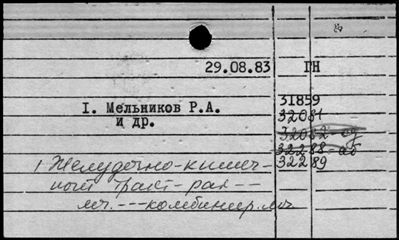 29.08.83 ГН
I. Мельников Р.А.
и др.
31859
32081
32082-ед
32288-аб
32289
1 Желудочно-кишеч-
ный тракт-рак---
леч.---комбинир.леч